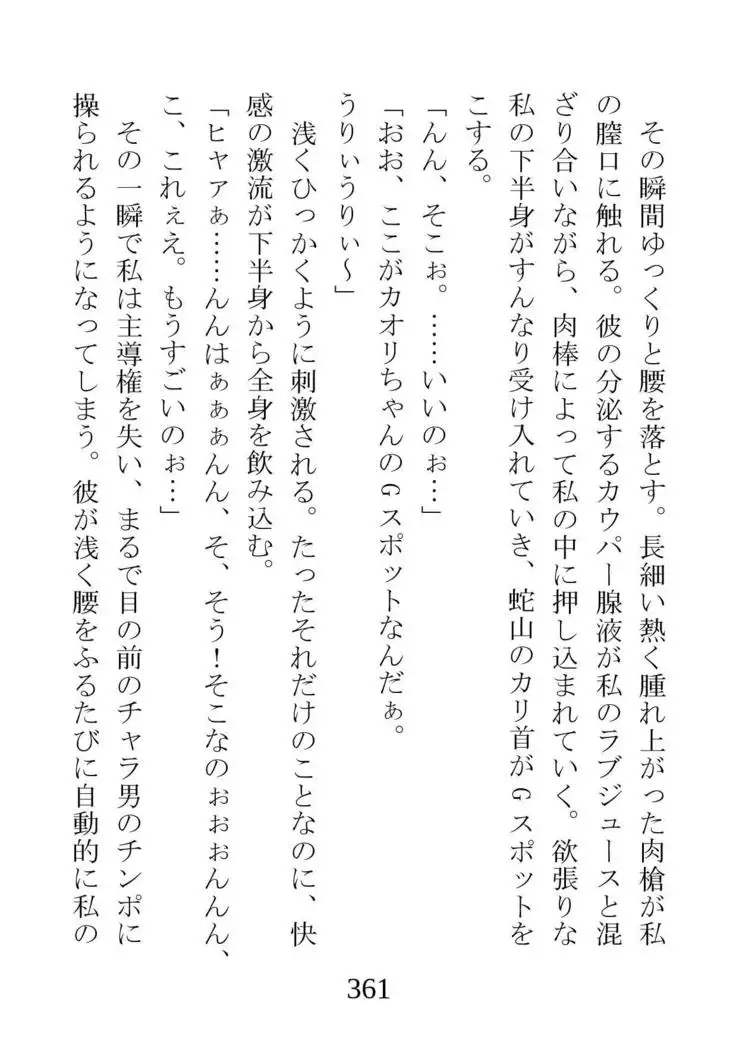 その瞬間ゆっくりと腰を落とす。長細い熱く腫れ上がった肉槍が私
の膣口に触れる。彼の分泌するカウパー腺液が私のラブジュースと混
ざり合いながら、肉棒によって私の中に押し込まれていく。欲張りな
私の下半身がすんなり受け入れていき、蛇山のカリ首がGスポットを
こする。
「んん、そこぉ。……いいのぉ…」
「おお、ここがカオリちゃんのGスポットなんだぁ。
うりぃうりぃ～」
浅くひっかくように刺激される。たったそれだけのことなのに、快
感の激流が下半身から全身を飲み込む。
「ヒヤアぁ……んんはぁぁぁんん、そ、そう！そこなのぉぉぉんんん、
こ、これぇえ。もうすごいのぉ…」
その一瞬で私は主導権を失い、まるで目の前のチャラ男のチンポに
操られるようになってしまう。彼が浅く腰をふるたびに自動的に私の
361